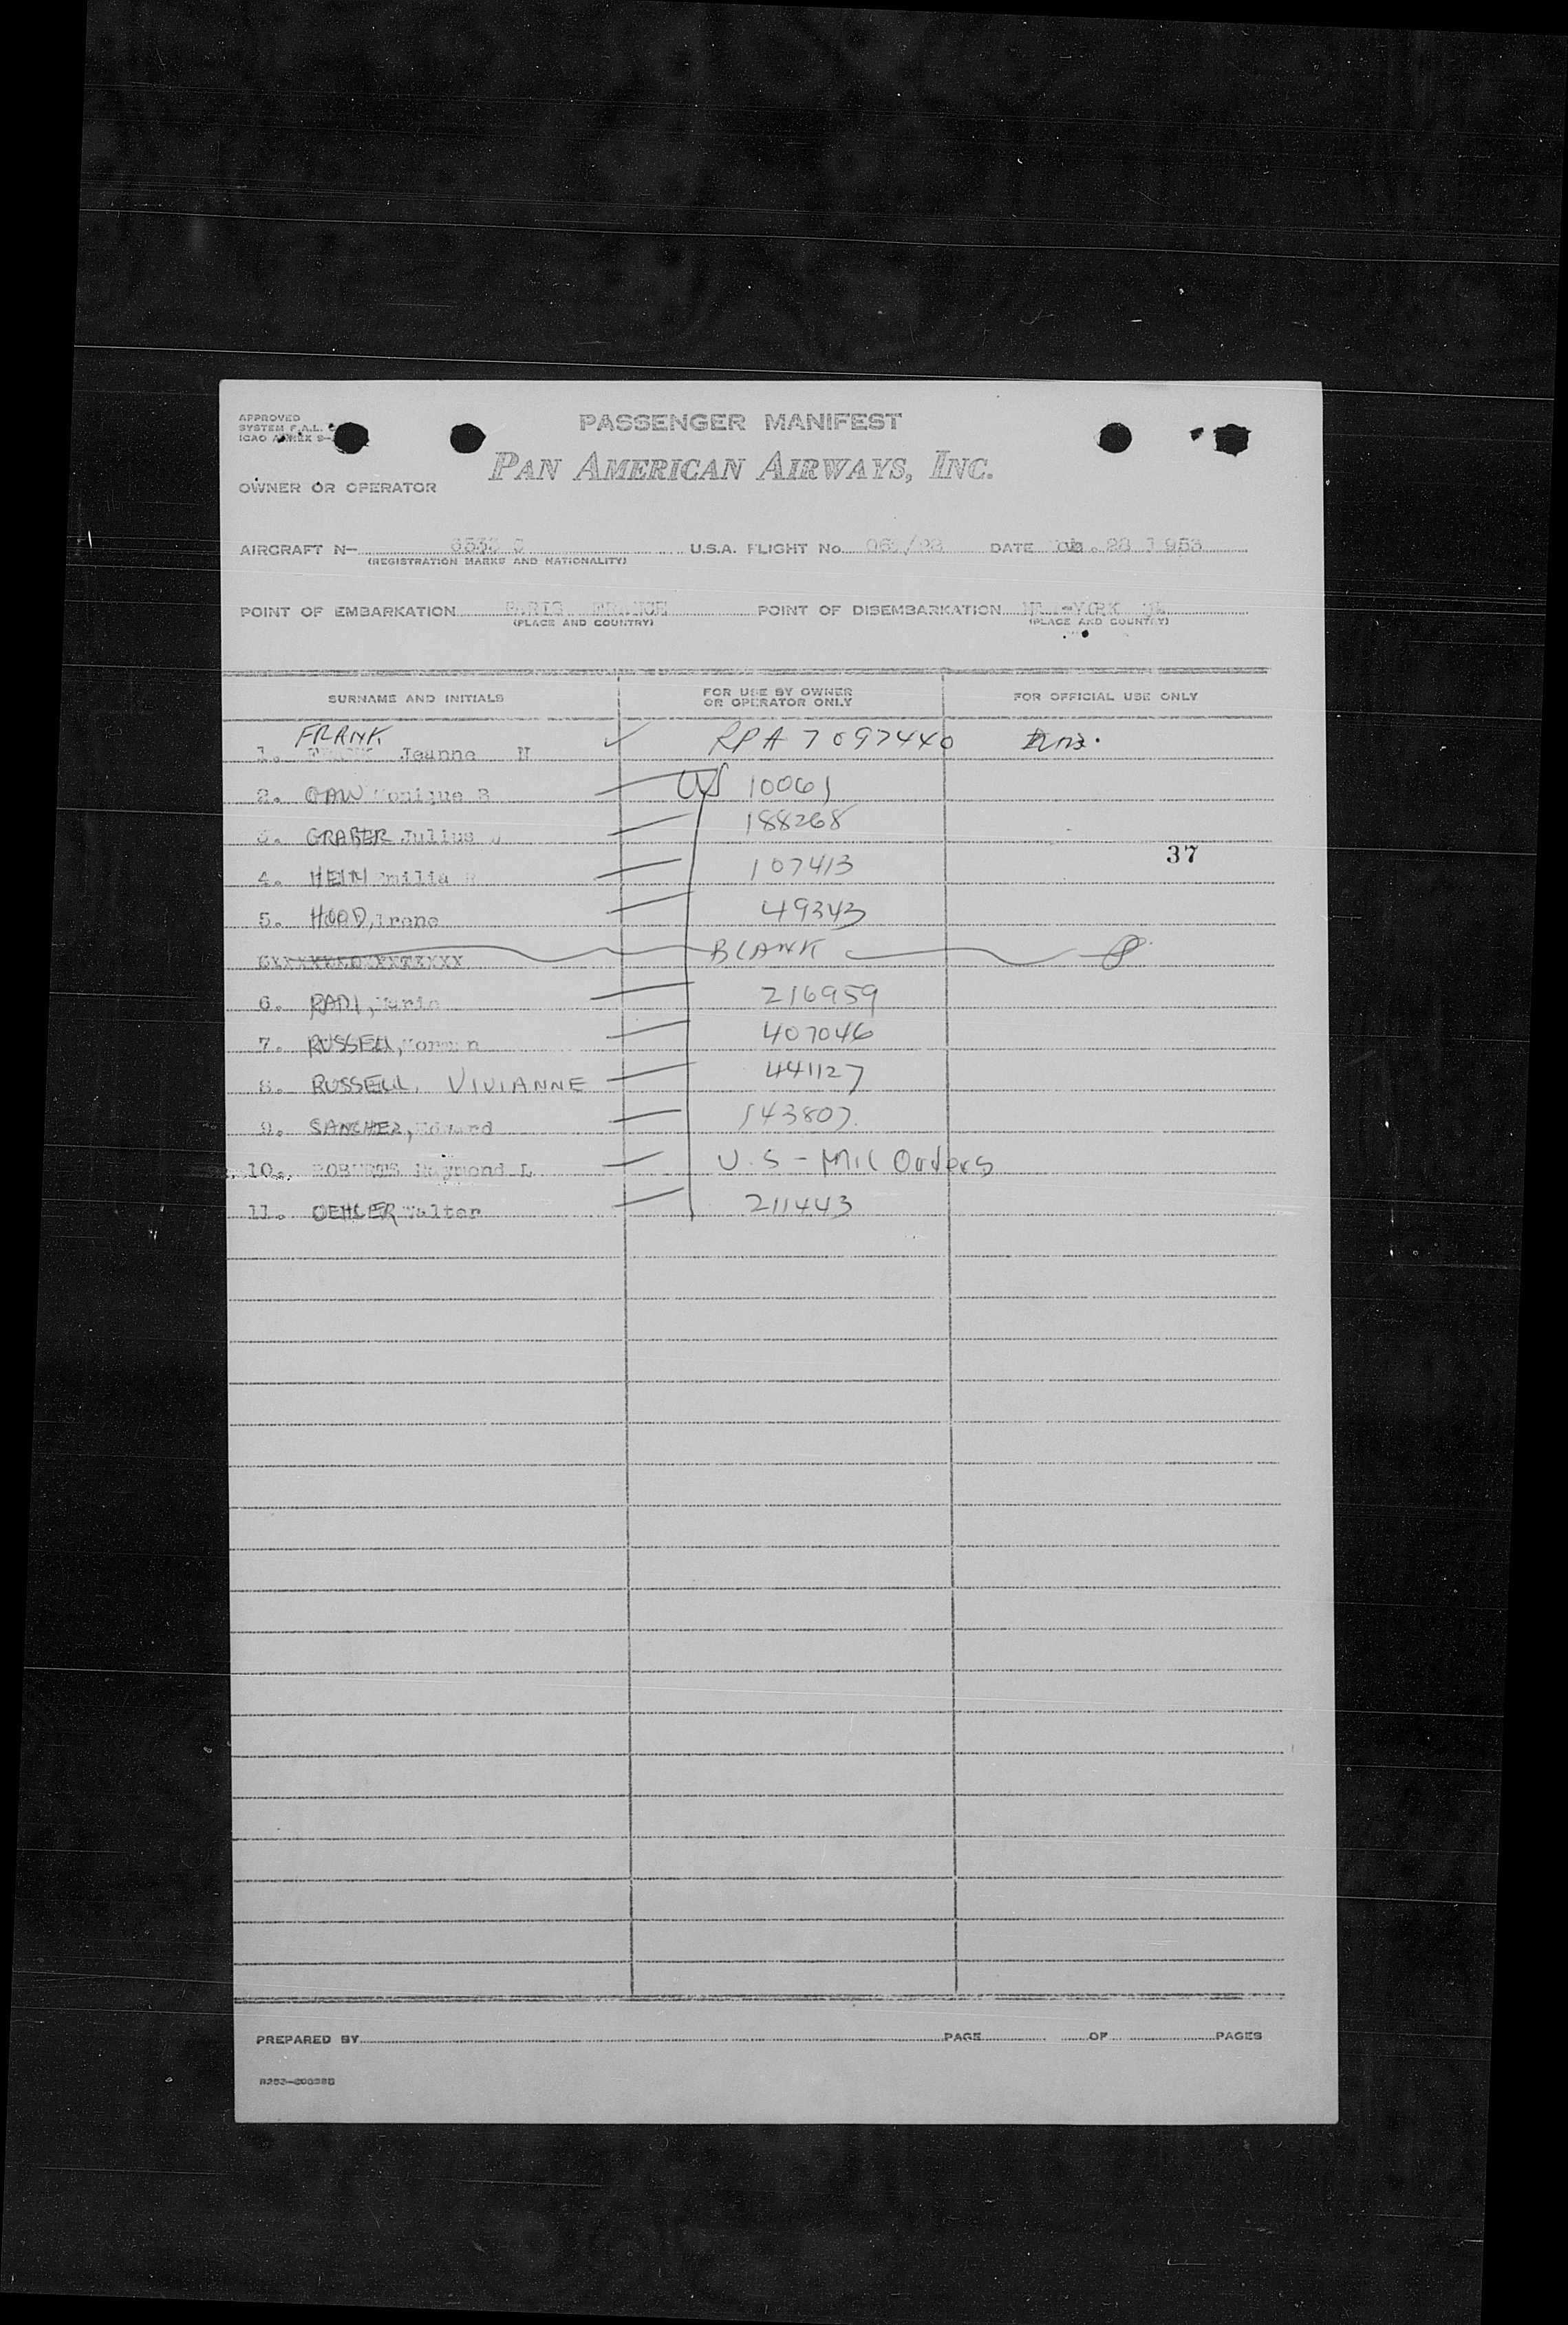 APPROVED
SYSTEM F.A.L.
ICAO ANNEX 9-
PASSENGER MANIFEST
PAN AMERICAN AIRWAYS, INC.
OWNER OR OPERATOR
AIRCRAFT N- U.S.A. FLIGHT No. DATE 28 1953
(REGISTRATION MARKS AND NATIONALITY)
POINT OF EMBARKATION PARIS FRANCE POINT OF DISEMBARKATION NEW-YORK
(PLACE AND COUNTRY) (PLACE AND COUNTRY)
SURNAME AND INITIALS FOR USE BY OWNER OR OPERATOR ONLY FOR OFFICIAL USE ONLY
FRANK
1. Jeanne RPA 7097440
2. GAW Monique B US 10061
3. GRABER Julius J 188268
37
4. HEIN Emilia 107413
5. HOOD, Irene 49343
BLANK
6. RADI, Marie 216959
7. RUSSELL, Norman 407046
8. RUSSELL, VIVIANNE 441127
9. SANCHEZ, Edward 543807.
10. ROBERTS Raymond L U.S - Mil Orders
11. OEHLER Walter 211443
PREPARED BY PAGE OF PAGES